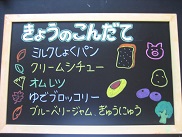 きょうのこんだて
ミルクしょくパン
クリームシチュー
オムレツ
ゆでブロッコリー
ブルーベリージャム、ぎゅうにゅう